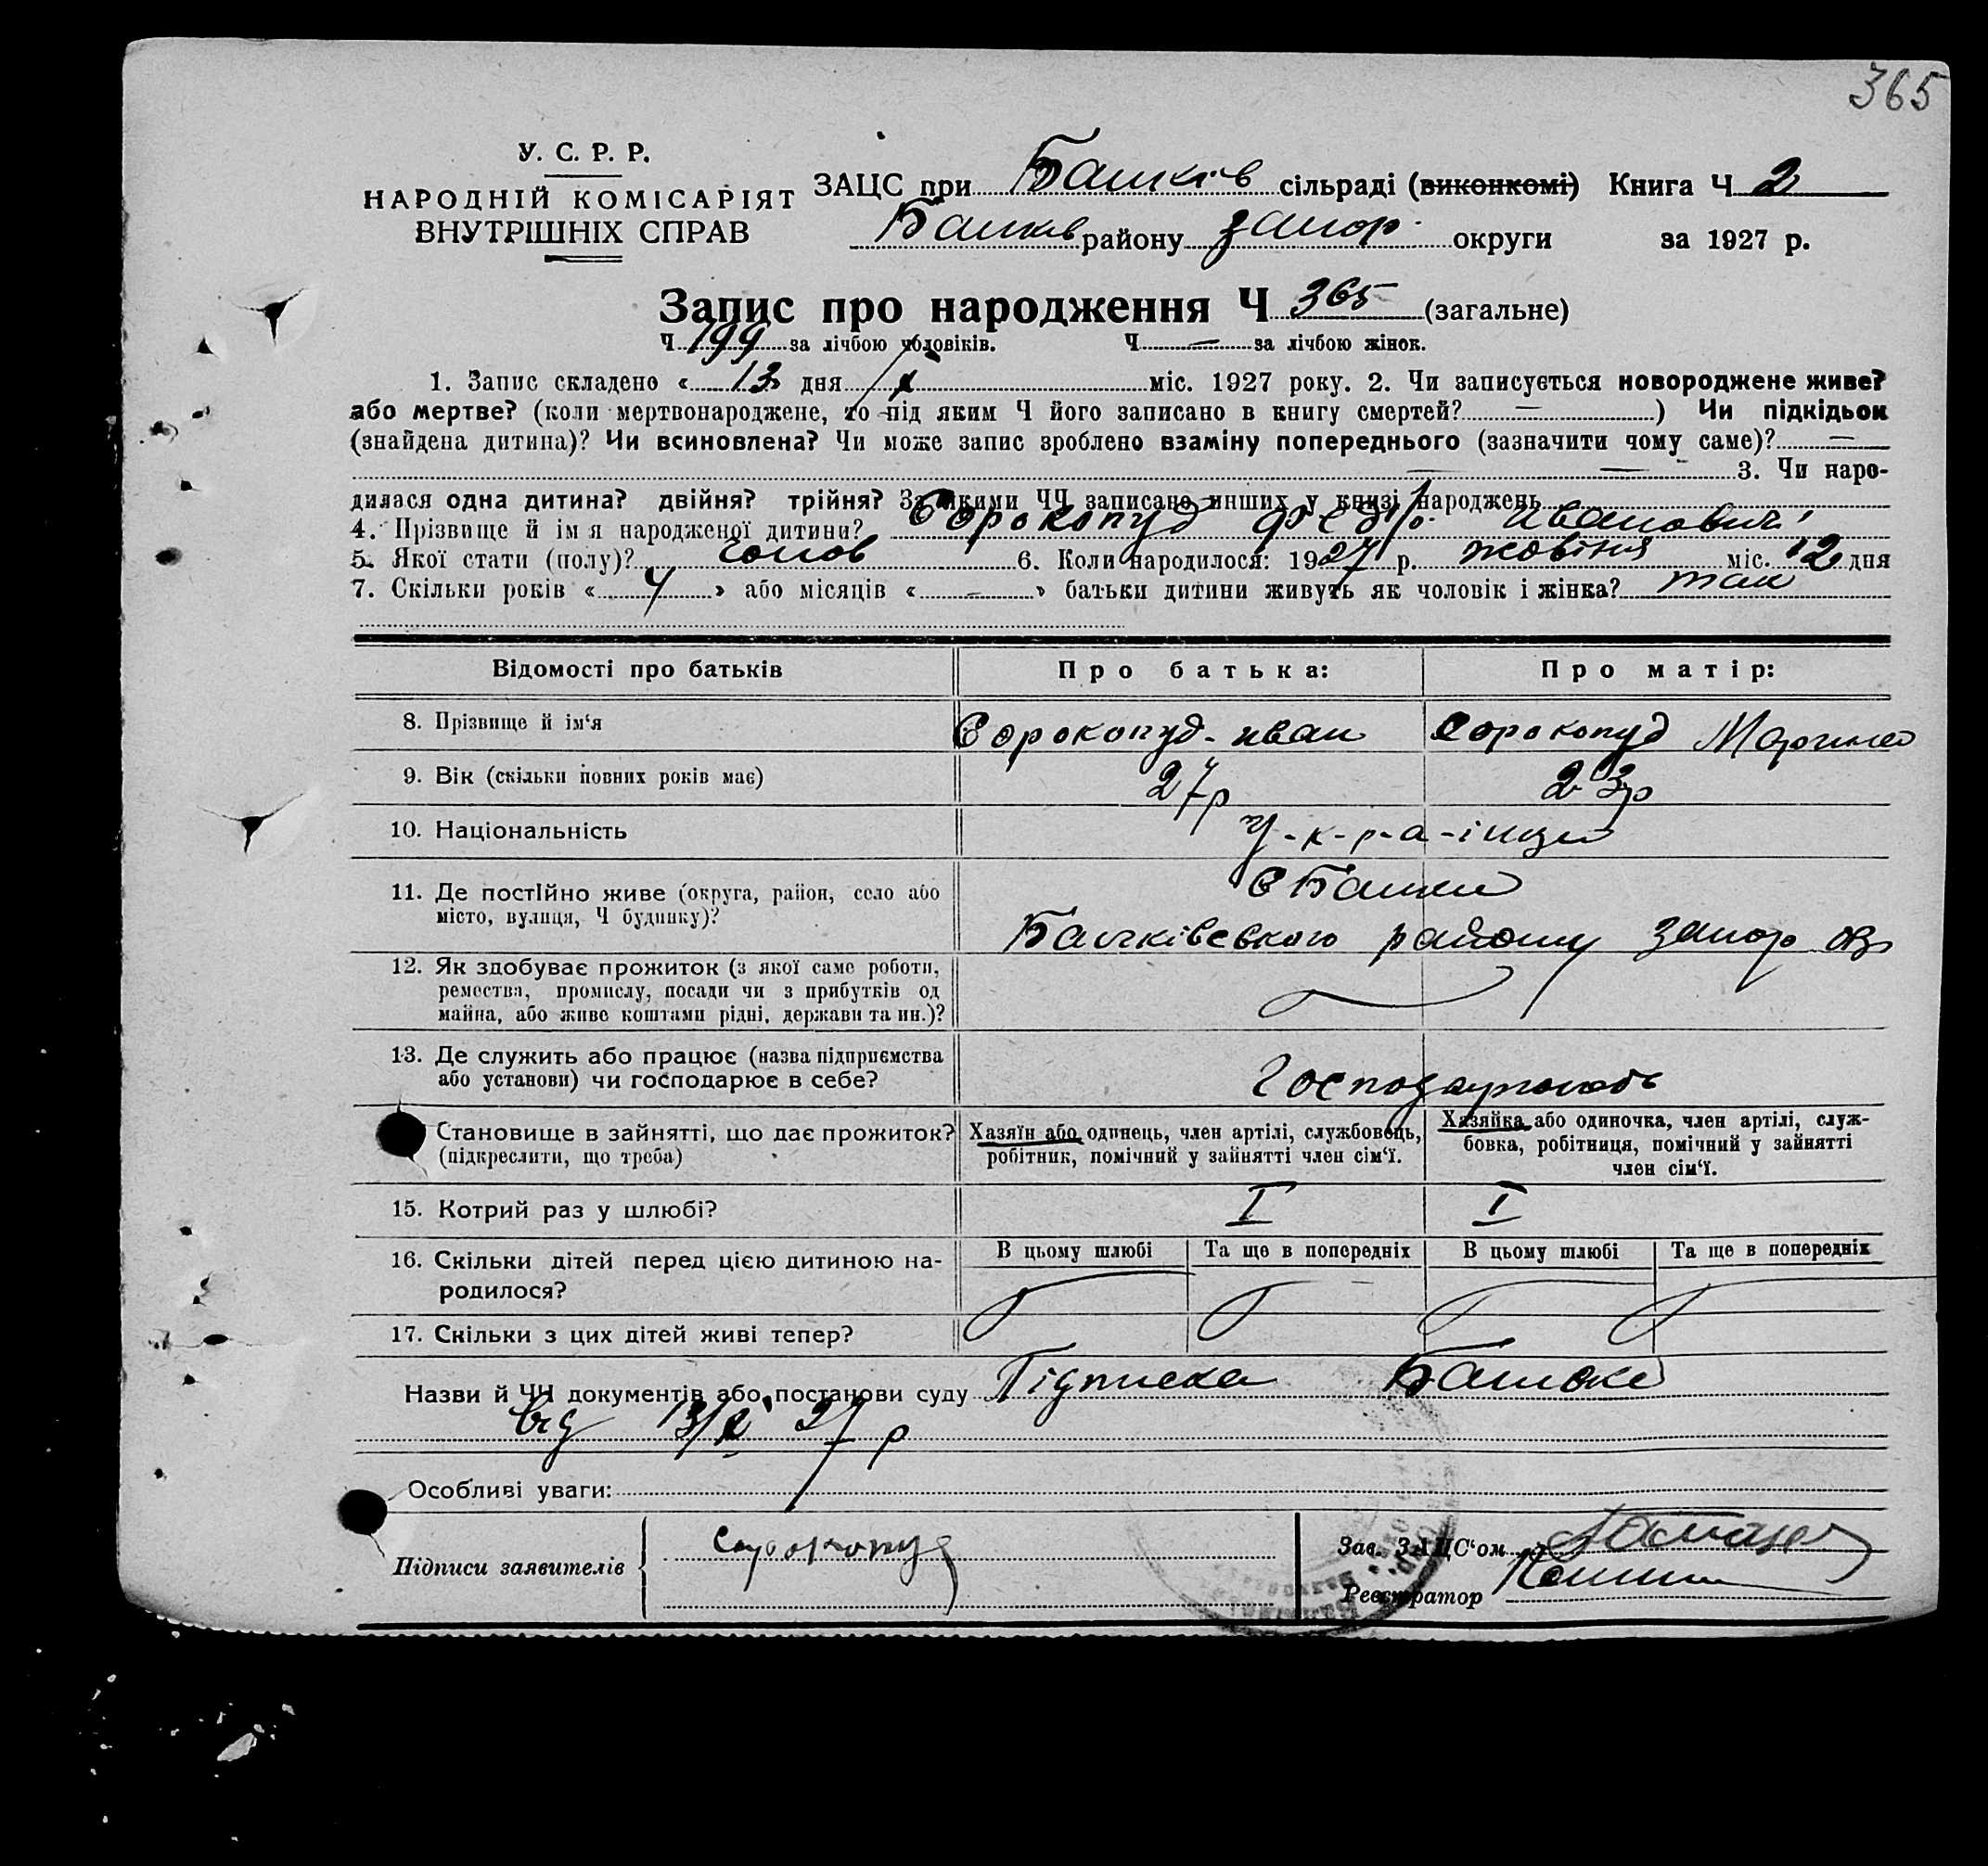 365
У. С. Р. Р.
НАРОДНІЙ КОМІСАРІЯТ
ВНУТРІШНІХ СПРАВ
ЗАЦС при Балків сільраді (виконкомі) Книга Ч 2
Балків району Запор. округи за 1927 р.
Запис про народження Ч 365 (загальне)
Ч 199 за лічбою чоловіків. Ч — за лічбою жінок.
1. Запис складено « 13 » дня X міс. 1927 року. 2. Чи записується новороджене живе?
або мертве? (коли мертвонароджене, то під яким Ч його записано в книгу смертей? — ) Чи підкідьок
(знайдена дитина)? Чи всиновлена? Чи може запис зроблено взаміну попереднього (зазначити чому саме)? —
— — 3. Чи наро-
дилася одна дитина? двійня? трійня? За якими ЧЧ записано инших у книзі народжень
4. Прізвище й імя народженої дитини? Сорокопуд Федір Иванович
5. Якої стати (полу)? чолов 6. Коли народилося: 1927 р. жовтня міс. 12 дня
7. Скільки років « 4 » або місяців « - » батьки дитини живуть як чоловік і жінка? так
Відомості про батьків Про батька: Про матір:
8. Прізвище й ім'я Сорокопуд - иван Сорокопуд
9. Вік (скільки повних років має) 27р 23р
10. Національність У-к-р-а-інци
11. Де постійно живе (округа, район, село або
місто, вулиця, Ч будинку)? с Балки
Балківського району запор окр
12. Як здобуває прожиток (з якої саме роботи,
ремества, промислу, посади чи з прибутків од
майна, або живе коштами рідні, держави та ин.)?
13. Де служить або працює (назва підприємства
або установи) чи господарює в себе?
Становище в зайнятті, що дає прожиток?
(підкреслити, що треба)
Хазяїн або одинець, член артілі, службовець,
робітник, помічний у зайнятті член сім'ї.
Хазяйка або одиночка, член артілі, служ-
бовка, робітниця, помічний у зайнятті
член сім'ї.
15. Котрий раз у шлюбі? I I
16. Скільки дітей перед цією дитиною на-
родилося?
В цьому шлюбі Та ще в попередніх В цьому шлюбі Та ще в попередніх
17. Скільки з цих дітей живі тепер?
Назви й ЧЧ документів або постанови суду Підписка
від 13/X 27 р
Особливі уваги:
Підписи заявителів Сорокопуд
Зав. ЗАЦС'ом
Реєстратор